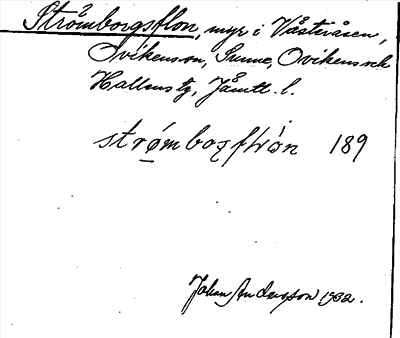 Strömborgsflon, myr i Västeråsen,
Ovikenson, Sunne, Ovikens och
Hallens tg, Jämtl. l.
strømbozflʹón 189
Johan Andersson 1932.